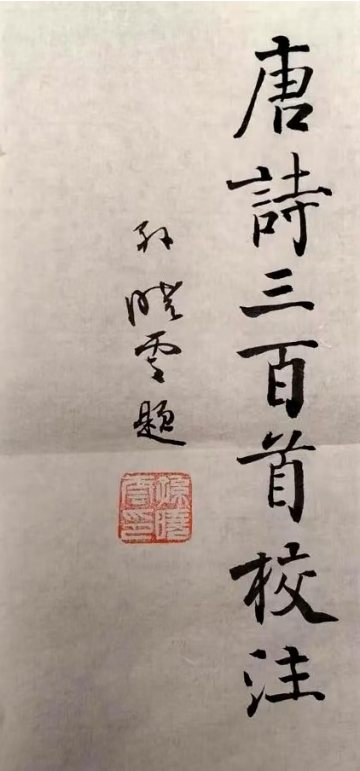 唐詩三百首校注
孙晓雲題
孫曉雲印